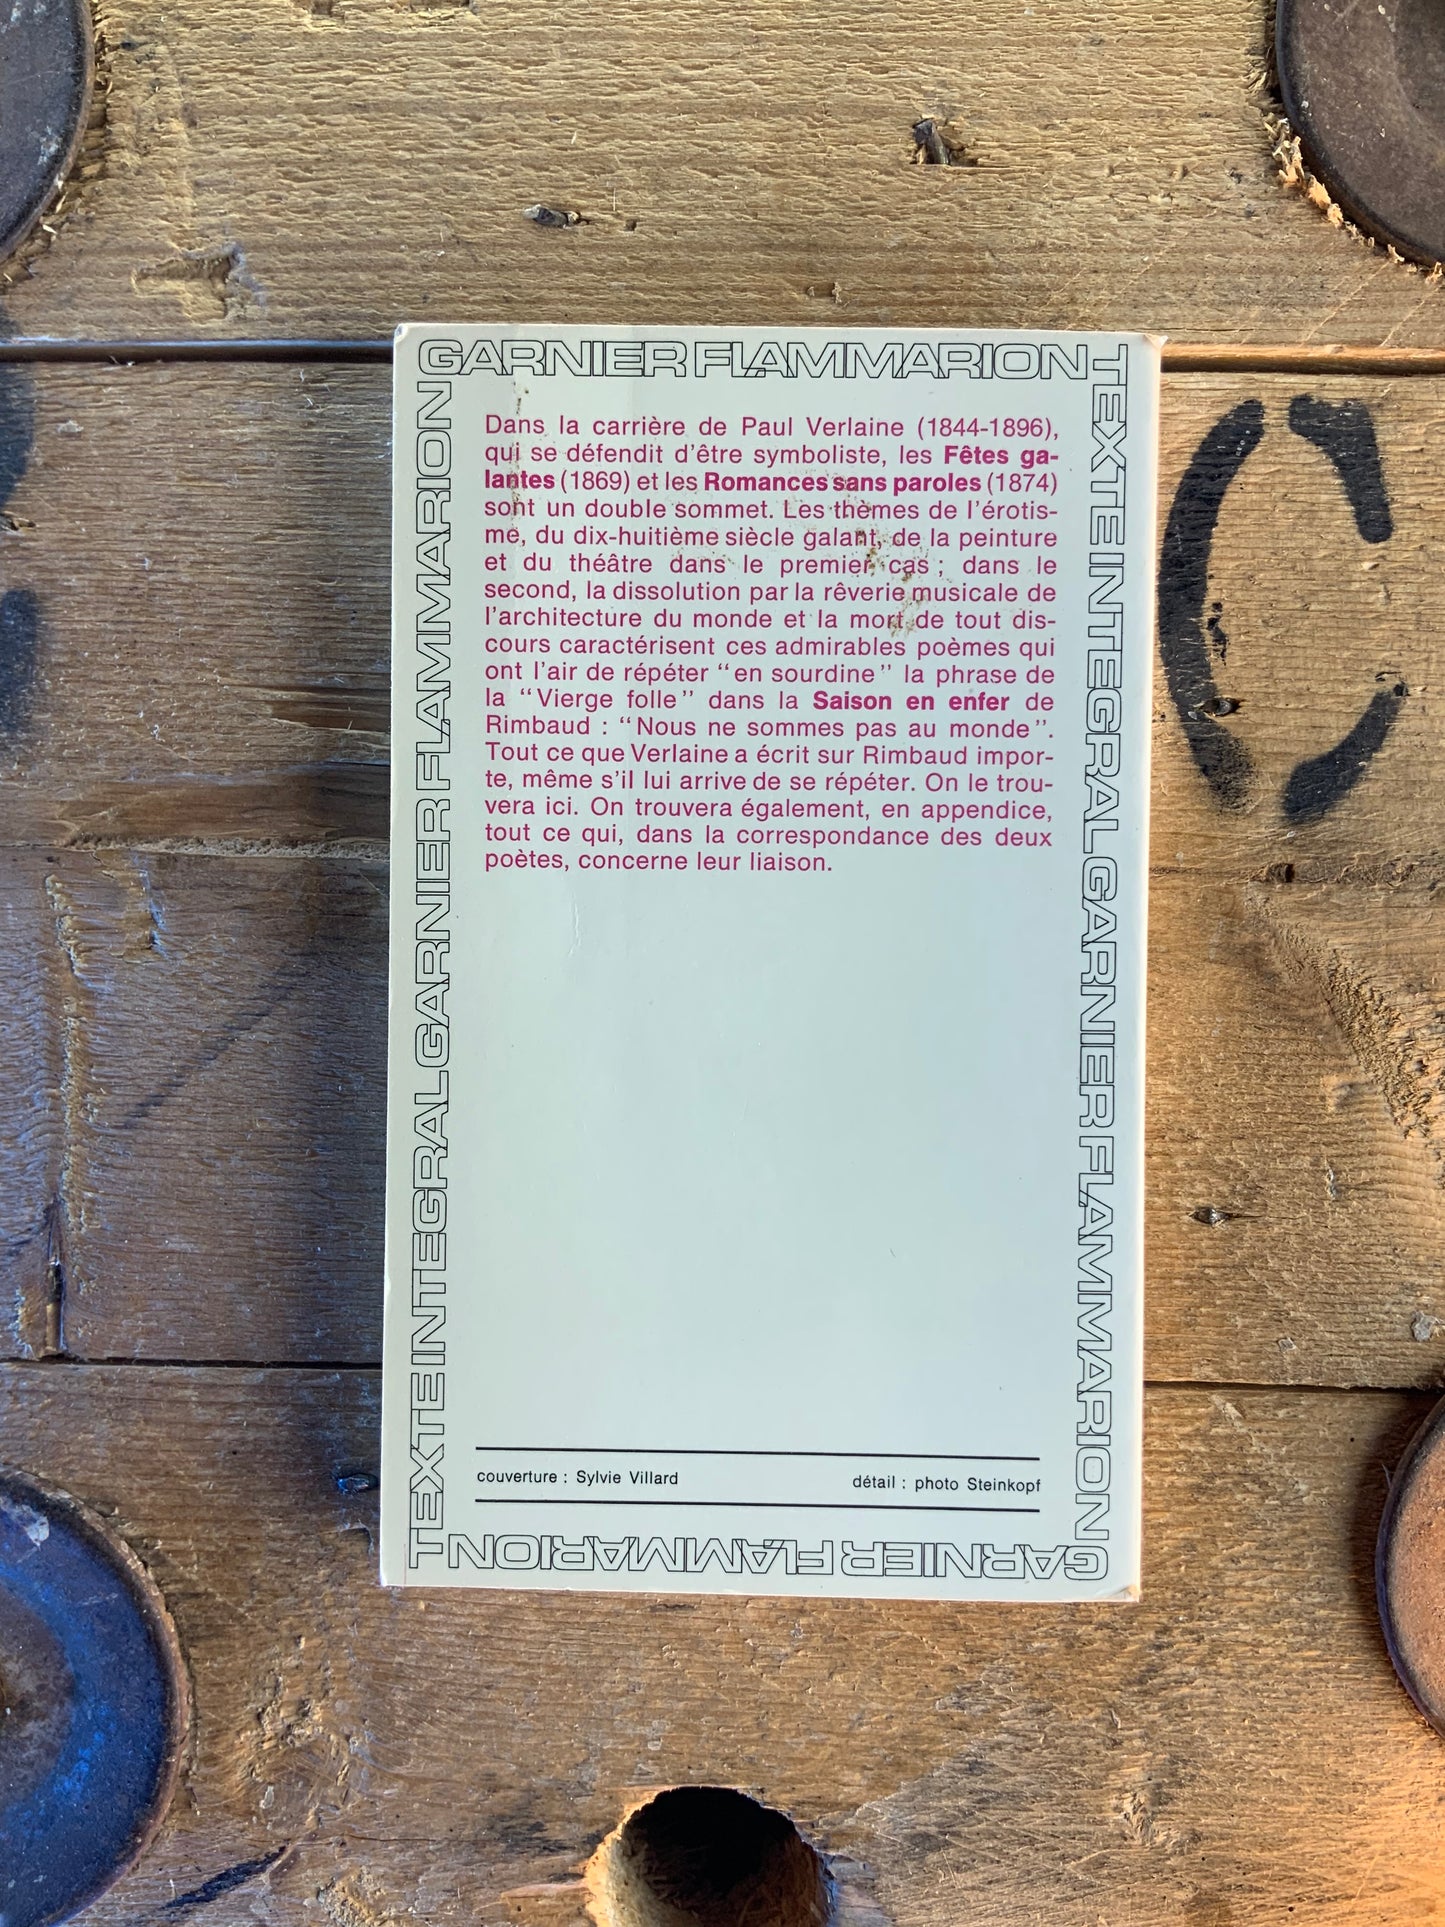 GARNIER FLAMMARION TEXTE INTEGRAL GARNIER FLAMMARION
GARNIER FLAMMARION TEXTE INTEGRAL GARNIER FLAMMARION
Dans la carrière de Paul Verlaine (1844-1896),
qui se défendit d'être symboliste, les Fêtes ga-
lantes (1869) et les Romances sans paroles (1874)
sont un double sommet. Les thèmes de l'érotis-
me, du dix-huitième siècle galant, de la peinture
et du théâtre dans le premier cas ; dans le
second, la dissolution par la rêverie musicale de
l'architecture du monde et la mort de tout dis-
cours caractérisent ces admirables poèmes qui
ont l'air de répéter "en sourdine" la phrase de
la "Vierge folle" dans la Saison en enfer de
Rimbaud : "Nous ne sommes pas au monde".
Tout ce que Verlaine a écrit sur Rimbaud impor-
te, même s'il lui arrive de se répéter. On le trou-
vera ici. On trouvera également, en appendice,
tout ce qui, dans la correspondance des deux
poètes, concerne leur liaison.
couverture : Sylvie Villard
détail : photo Steinkopf
TEXTE INTEGRAL GARNIER FLAMMARION
GARNIER FLAMMARION
C